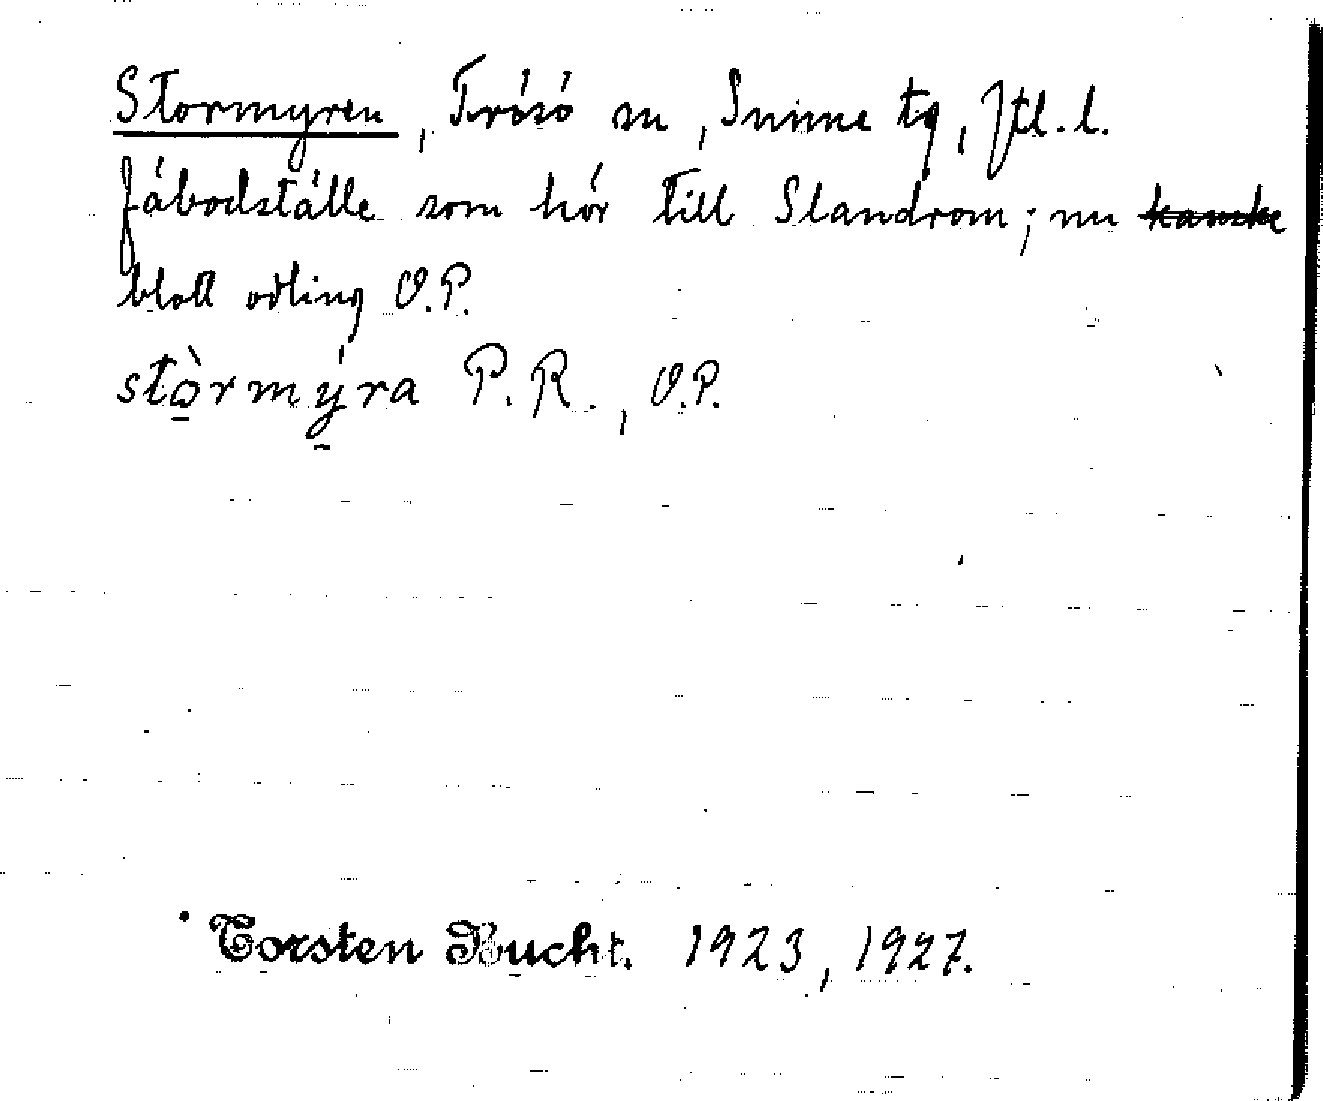 Stormyren, Frösö sn, Sunne tg, Jtl. l.
fäbodställe som hör till Slandrom; nu kanske
blott odling O.P.
stòrmýra P.R., O.P.
Torsten Bucht. 1923, 1927.